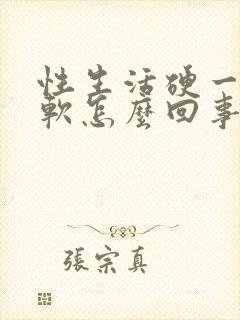 性生活硬一
軟怎麼回事
張宗真